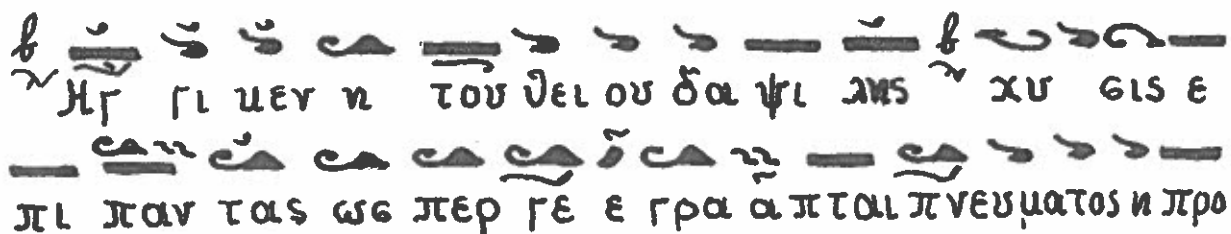 Ηγ γι μεν η του θει ου δα ψι λης χυ σις ε
πι παν τας ως περ γε ε γρα α πται πνευματος η προ